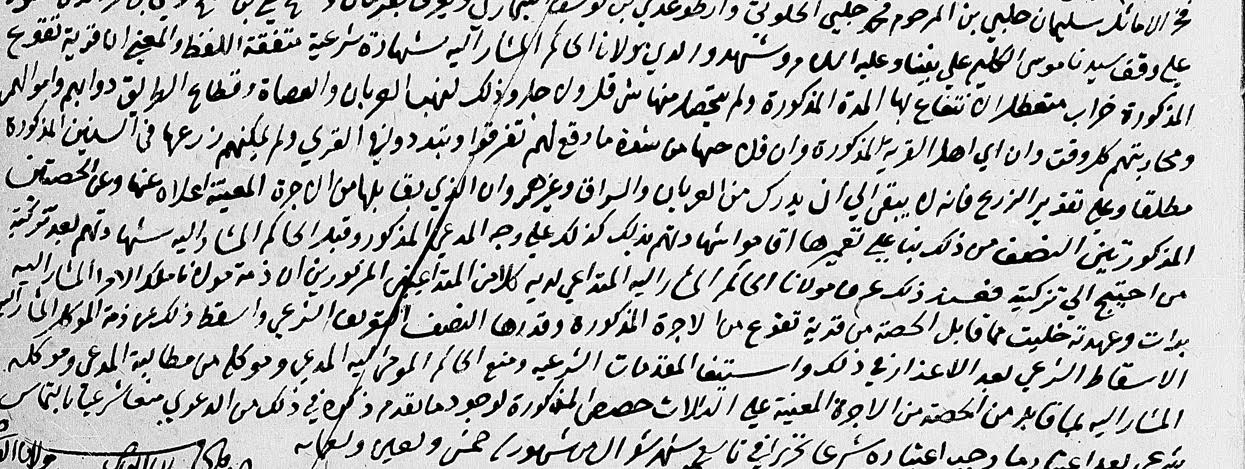 فخر الاماثل سليمان جلبي بن المرحوم محمد جلبي الخلوتي
على وقف سيدنا موسى الكليم على نبينا وعليه السلام وشهدوا لدى مولانا الحاكم المشار اليه شهادة شرعية متفقة اللفظ والمعنى ان قرية تقوع
المذكورة خراب متعطل الانتفاع بها المدة المذكورة ولم يتحصل منها شي قل ولا جل وذلك لنهب العربان والعصاة وقطاع الطريق دوابهم واموالهم
ومحاربتهم كل وقت وان اهل القرية المذكورة وان فلاحيها من شدة ما وقع لهم تفرقوا وتبددوا في القرى ولم يمكنهم زرعها في السنين المذكورة
مطلقا وعلى تقدير الزرع فانه لا يبقى الى ان يدرك من العربان والسراق وغيرهم وان الذي يقابلها من الاجرة المعينة اعلاه عنها وعن الحصتين
المذكورتين النصف من ذلك بناء على تعميرها اقاموا شهادتهم بذلك كذلك على وجه المدعي المذكور وقبل الحاكم المشار اليه شهادتهم بعد تزكية
من احتيج الى تزكيته فعند ذلك عرف مولانا الحاكم المشار اليه المتداعي لديه كلا من المتداعيين المزبورين ان ذمة مولانا ملك الامرا المشار اليه
برات وعهدته خليت مما قابل الحصة من قرية تقوع من الاجرة المذكورة وقدرها النصف الشرعي واسقط ذلك عن ذمة الموكل المشار اليه
الاسقاط الشرعي بعد الاعذار في ذلك واستيفا المقدمات الشرعيه ومنع الحاكم المومى اليه المدعي وموكله من مطالبة المدعى وموكله
المشار اليه بما قابل من الحصة من الاجرة المعينة على الثلاث حصص المذكورة لوجود ما تقدم ذكره في ذلك من الدعوى منعا شرعيا بالتماس
شرعي بعد اعتبار ما وجب اعتباره شرعا تحريرا في تاسع شهر شوال من شهور سنة خمس وتسعين وتسعمايه